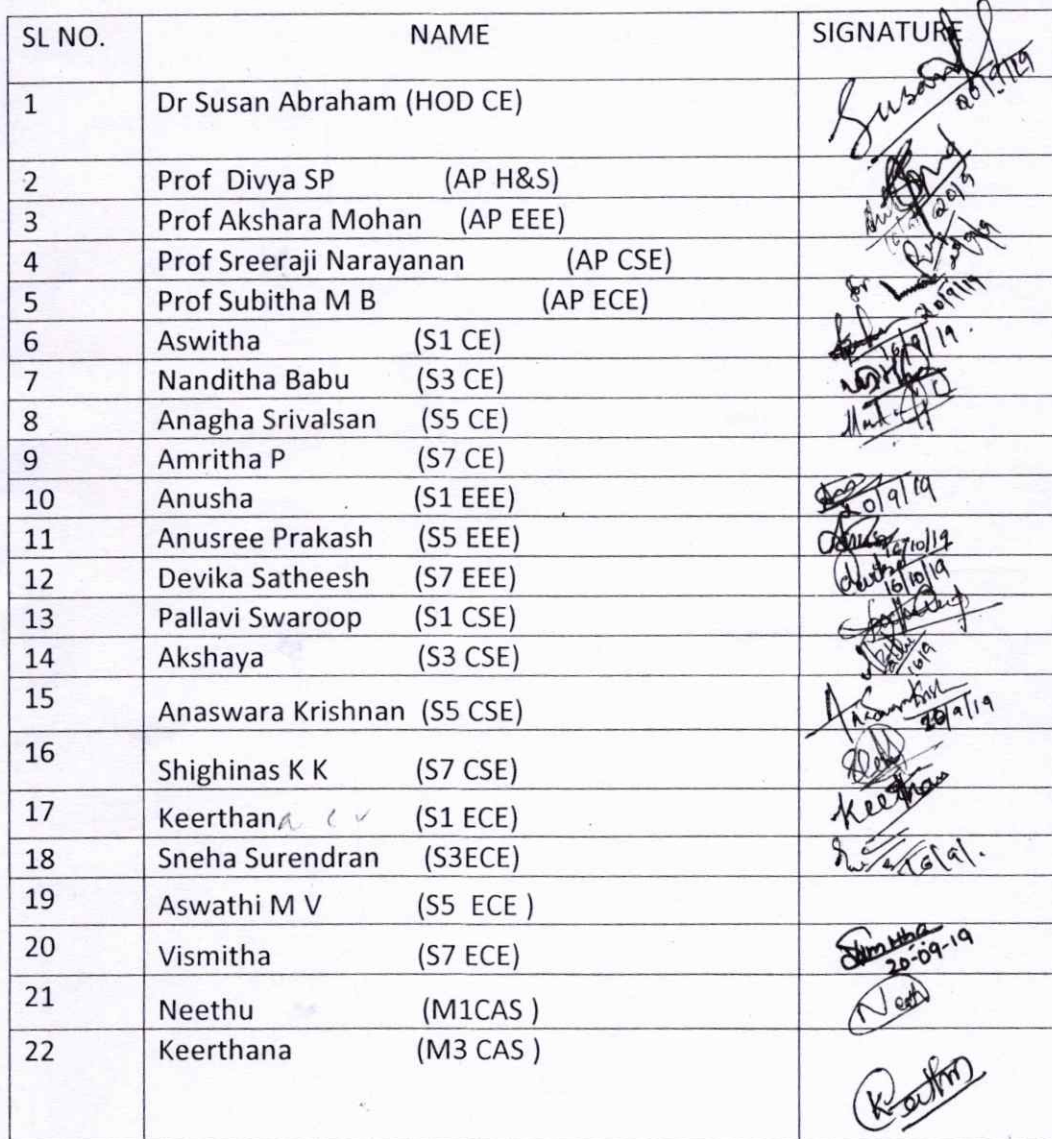 SL NO. NAME SIGNATURE
1 Dr Susan Abraham (HOD CE) Susan 20/9/19
2 Prof Divya SP (AP H&S) 20/9
3 Prof Akshara Mohan (AP EEE)
4 Prof Sreeraji Narayanan (AP CSE)
5 Prof Subitha M B (AP ECE) 20/9/19
6 Aswitha (S1 CE)
7 Nanditha Babu (S3 CE)
8 Anagha Srivalsan (S5 CE)
9 Amritha P (S7 CE)
10 Anusha (S1 EEE) 20/9/19
11 Anusree Prakash (S5 EEE) 16/10/19
12 Devika Satheesh (S7 EEE) 16/10/19
13 Pallavi Swaroop (S1 CSE)
14 Akshaya (S3 CSE) 16/9
15 Anaswara Krishnan (S5 CSE) 20/9/19
16 Shighinas K K (S7 CSE)
17 Keerthana C V (S1 ECE) Keerthana
18 Sneha Surendran (S3ECE) 16/9/.
19 Aswathi M V (S5 ECE )
20 Vismitha (S7 ECE) 20-09-19
21 Neethu (M1CAS ) Neeth
22 Keerthana (M3 CAS )